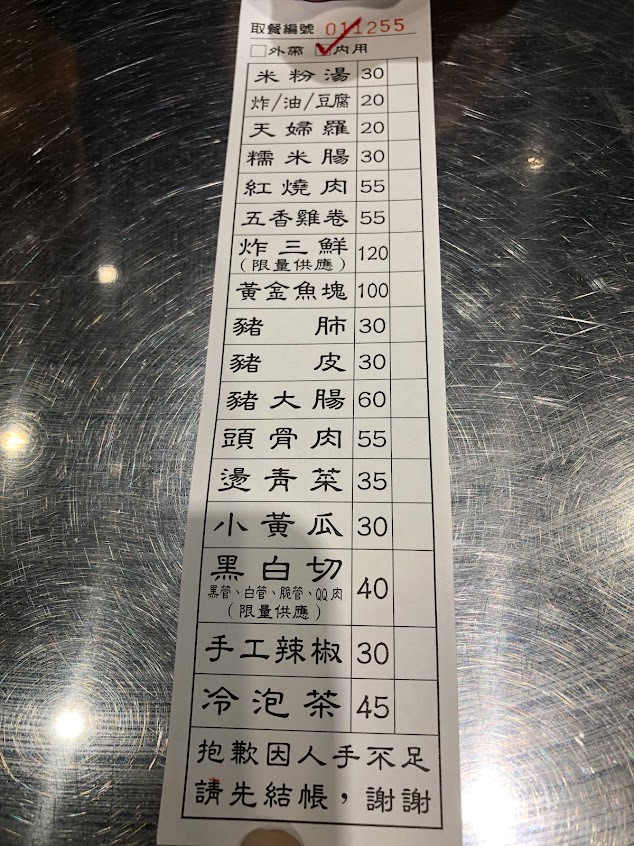 取餐編號 011255
□外帶 ☑內用
米粉湯 30
炸/油/豆腐 20
天婦羅 20
糯米腸 30
紅燒肉 55
五香雞卷 55
炸三鮮 120
(限量供應)
黃金魚塊 100
豬肺 30
豬皮 30
豬大腸 60
頭骨肉 55
燙青菜 35
小黃瓜 30
黑白切 40
黑管、白管、脆管、QQ肉
(限量供應)
手工辣椒 30
冷泡茶 45
抱歉因人手不足
請先結帳，謝謝